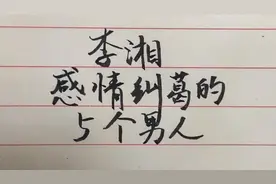 李湘
感情纠葛的
5个男人